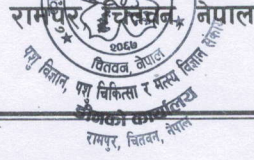 रामपुर, चितवन, नेपाल
२०६७
चितवन, नेपाल
पशु विज्ञान, पशु चिकित्सा र मत्स्य विज्ञान संकाय
डीनको कार्यालय
रामपुर, चितवन, नेपाल